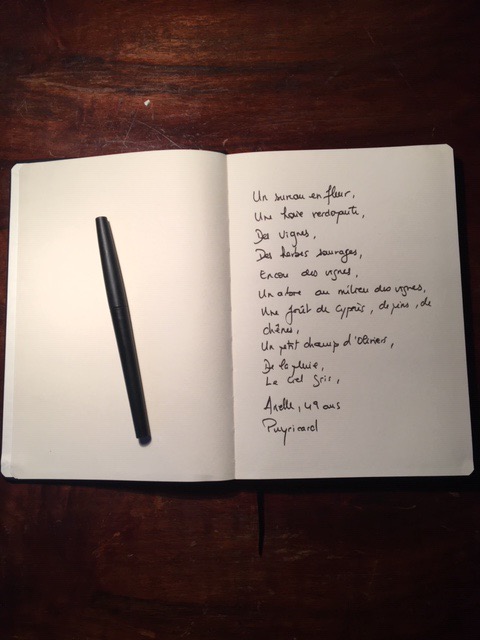 Un sureau en fleur,
Une haie verdoyante,
Des vignes,
Des herbes sauvages,
Encore des vignes,
Un arbre au milieu des vignes,
Une forêt de cyprès, de pins, de
chênes,
Un petit champ d'oliviers,
De la pluie,
Le ciel gris,
Axelle, 49 ans
Puyricard